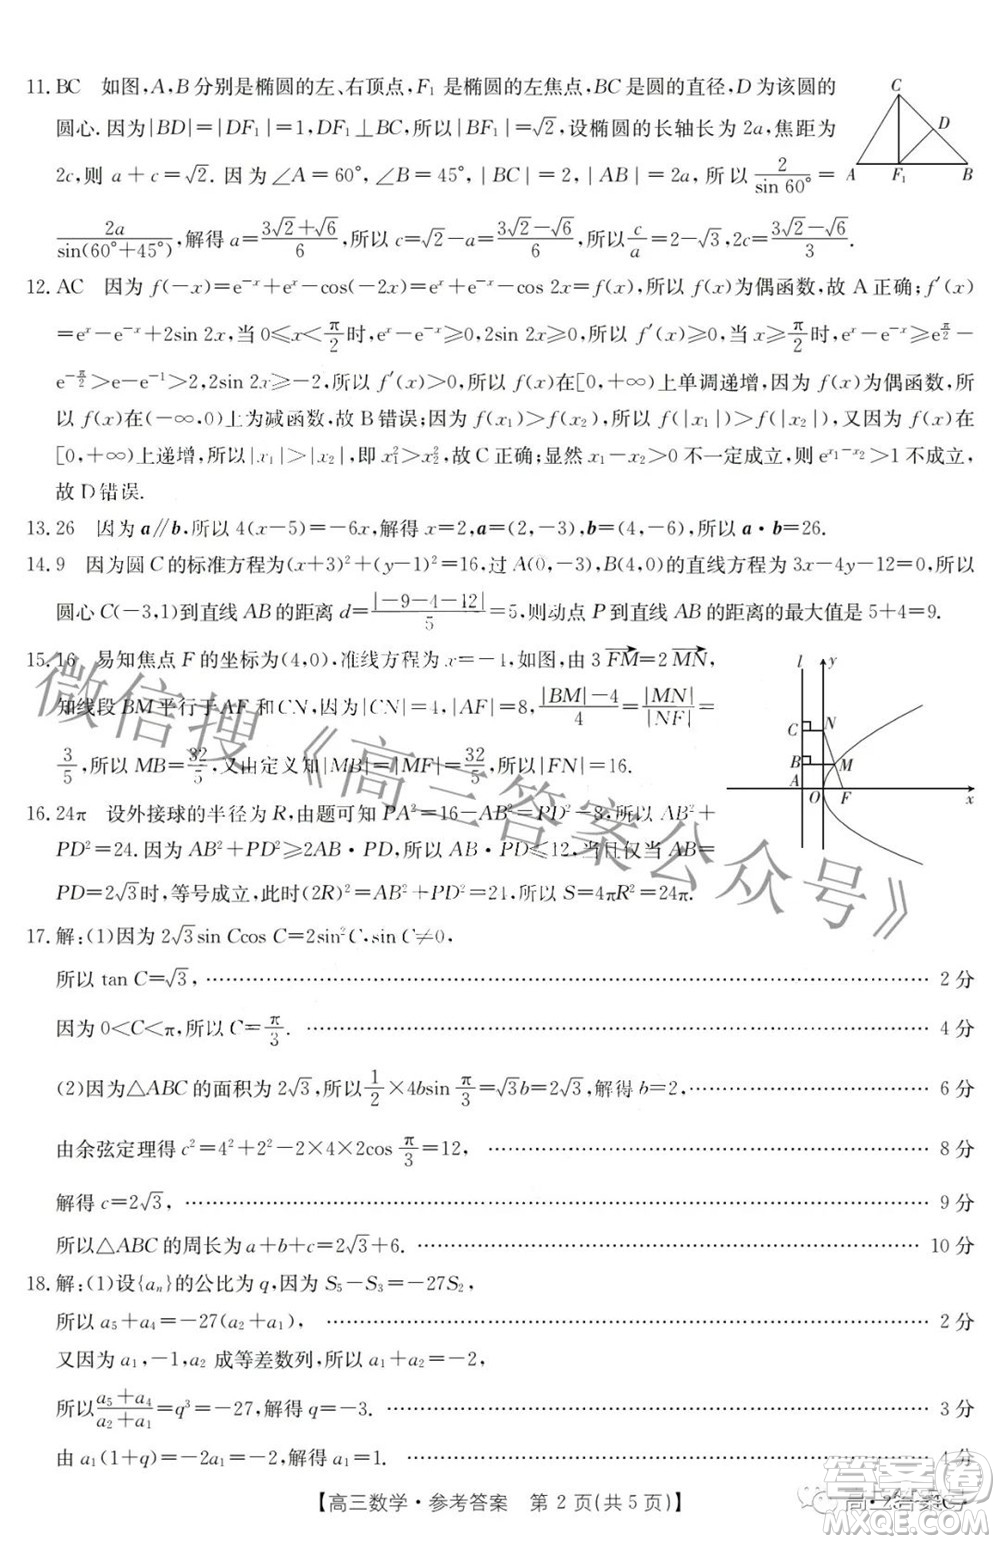 11. BC 如图,A,B分别是椭圆的左、右顶点,F₁是椭圆的左焦点,BC是圆的直径,D为该圆的
圆心.因为|BD|=|DF₁|=1,DF₁⊥BC,所以|BF₁|=√2,设椭圆的长轴长为2a,焦距为
2c,则a+c=√2.因为∠A=60°,∠B=45°,|BC|=2,|AB|=2a,所以2/sin 60°=
2a/sin(60°+45°),解得a=(3√2+√6)/6,所以c=√2-a=(3√2-√6)/6,所以c/a=2-√3,2c=(3√2-√6)/3.
C
D
A F₁ B
12. AC 因为f(-x)=e⁻ˣ+eˣ-cos(-2x)=eˣ+e⁻ˣ-cos 2x=f(x),所以f(x)为偶函数,故A正确;f′(x)
=eˣ-e⁻ˣ+2sin 2x,当0≤x<π/2时,eˣ-e⁻ˣ≥0,2sin 2x≥0,所以f′(x)≥0,当x≥π/2时,eˣ-e⁻ˣ≥e^(π/2)-
e^(-π/2)>e-e⁻¹>2,2sin 2x≥-2,所以f′(x)>0,所以f(x)在[0,+∞)上单调递增,因为f(x)为偶函数,所
以f(x)在(-∞,0)上为减函数,故B错误;因为f(x₁)>f(x₂),所以f(|x₁|)>f(|x₂|),又因为f(x)在
[0,+∞)上递增,所以|x₁|>|x₂|,即x₁²>x₂²,故C正确;显然x₁-x₂>0不一定成立,则e^(x₁-x₂)>1不成立,
故D错误.
13. 26 因为a∥b,所以4(x-5)=-6x,解得x=2,a=(2,-3),b=(4,-6),所以a·b=26.
14. 9 因为圆C的标准方程为(x+3)²+(y-1)²=16,过A(0,-3),B(4,0)的直线方程为3x-4y-12=0,所以
圆心C(-3,1)到直线AB的距离d=|-9-4-12|/5=5,则动点P到直线AB的距离的最大值是5+4=9.
15. 16 易知焦点F的坐标为(4,0),准线方程为x=-4,如图,由3FM→=2MN→,
知线段BM平行于AF和CN,因为|CN|=4,|AF|=8,(|BM|-4)/4=|MN|/|NF|=
3/5,所以MB=32/5,又由定义知|MB|=|MF|=32/5,所以|FN|=16.
l y
C N
B M
A O F x
16. 24π 设外接球的半径为R,由题可知PA²=16-AB²=PD²-8,所以AB²+
PD²=24.因为AB²+PD²≥2AB·PD,所以AB·PD≤12,当且仅当AB=
PD=2√3时,等号成立,此时(2R)²=AB²+PD²=24,所以S=4πR²=24π.
17. 解:(1)因为2√3sin Ccos C=2sin²C,sin C≠0,
所以tan C=√3, ………… 2分
因为0<C<π,所以C=π/3. ………… 4分
(2)因为△ABC的面积为2√3,所以1/2×4bsin π/3=√3b=2√3,解得b=2, ………… 6分
由余弦定理得c²=4²+2²-2×4×2cos π/3=12, ………… 8分
解得c=2√3, ………… 9分
所以△ABC的周长为a+b+c=2√3+6. ………… 10分
18. 解:(1)设{aₙ}的公比为q,因为S₅-S₃=-27S₂,
所以a₅+a₄=-27(a₂+a₁), ………… 2分
又因为a₁,-1,a₂成等差数列,所以a₁+a₂=-2,
所以(a₅+a₄)/(a₂+a₁)=q³=-27,解得q=-3. ………… 3分
由a₁(1+q)=-2a₁=-2,解得a₁=1. ………… 4分
【高三数学·参考答案 第2页(共5页)】
微信搜《高三答案公众号》
答案圈
MXQE.COM